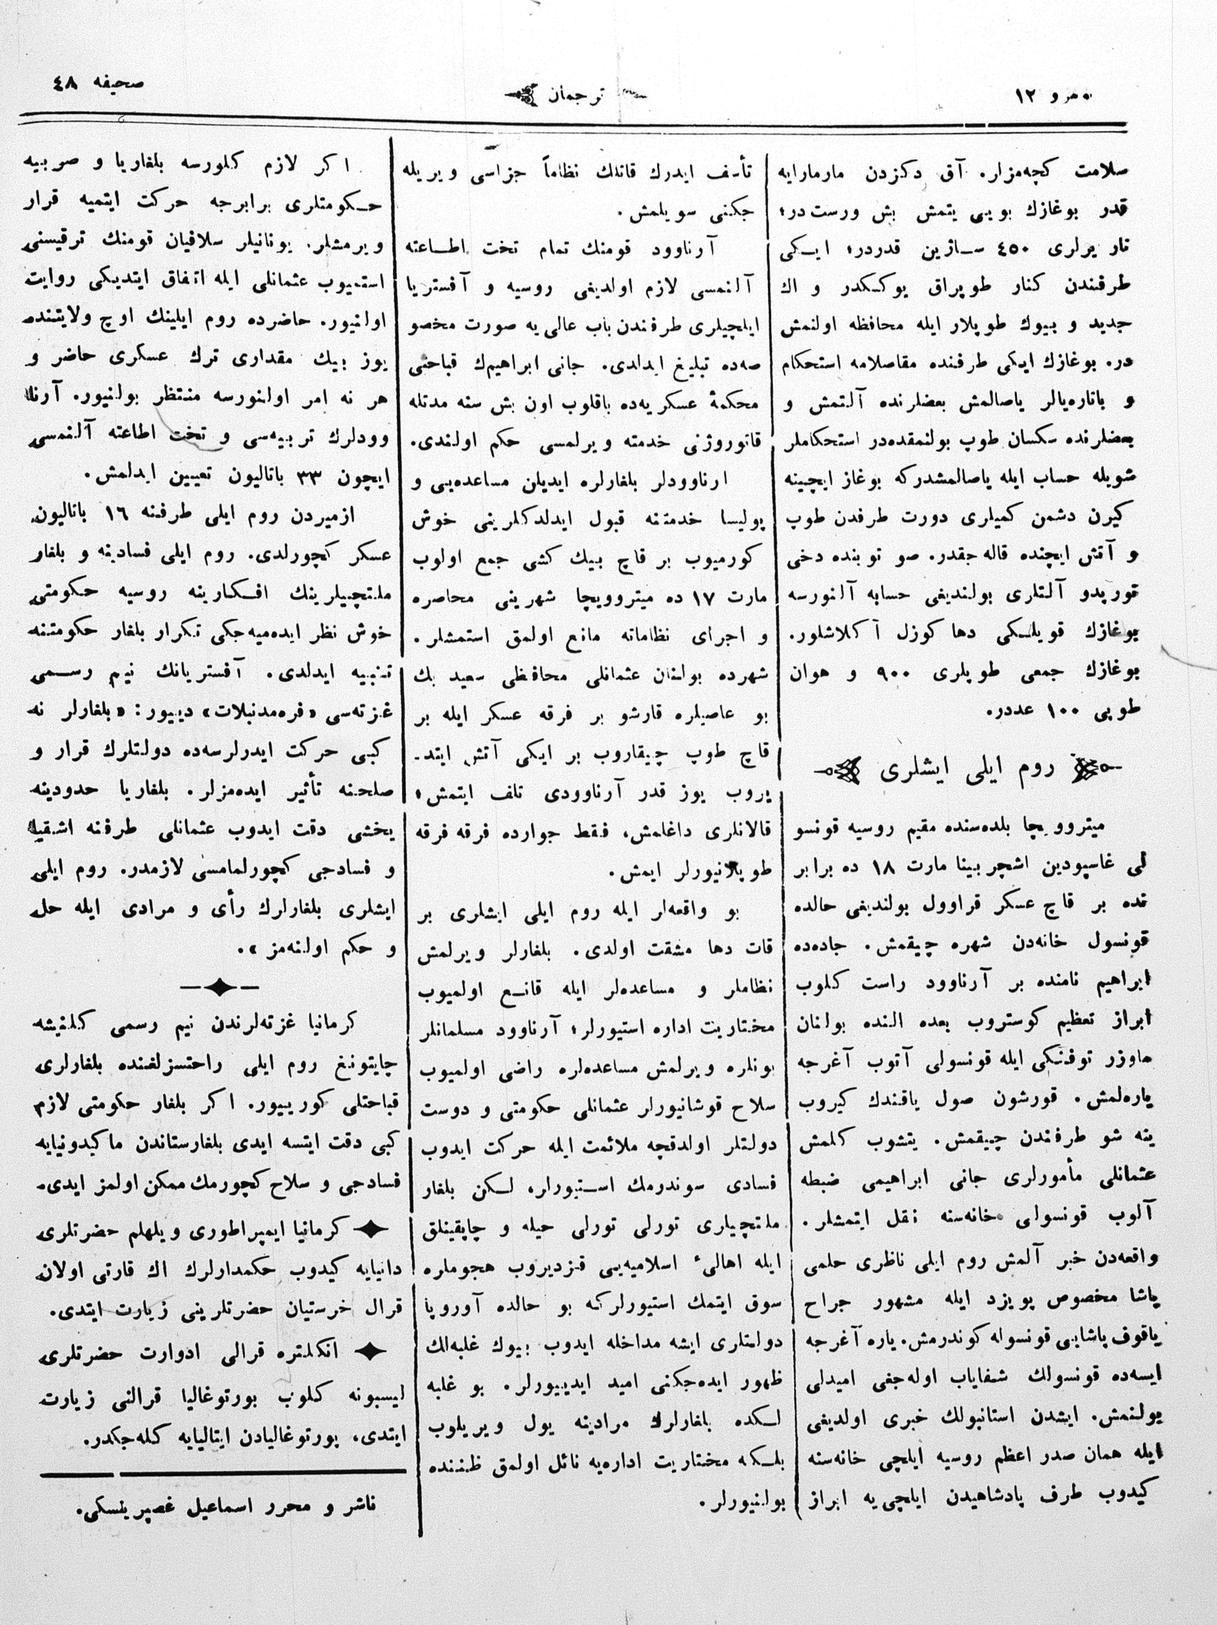 نومرو ١٢
ترجمان
صحيفه ٤٨
سلامت كچه‌مزلر. آق دكزدن مارمارايه
قدر بوغازك بويى يتمش بش ورست در؛
تار يرلرى ٤٥٠ ساژين قدردر؛ ايكى
طرفندن كنار طوپراق يوكسكدر و اك
جديد و بيوك طوپلار ايله محافظه اولنمش
در. بوغازك ايكى طرفنده مقاصلامه استحكام
و باتاره‌يالر ياصالمش بعضلرنده آلتمش و
بعضلرنده سكسان طوپ بولنمقده‌در استحكاملر
شويله حساب ايله ياصالمشدركه بوغاز ايچينه
كيرن دشمن كميلرى دورت طرفدن طوپ
و آتش ايچنده قاله‌جقدر. صو توبنده دخى
تورپدو آلتلرى بولنديغى حسابه آلنورسه
بوغازك قويلىكى دها كوزل آكلاشلور.
بوغازك جمعى طوپلرى ٩٠٠ و هوان
طوپى ١٠٠ عددر.
روم ايلى ايشلرى
ميتروويچا بلده‌سنده مقيم روسيه قونسو
لى غاسپودين اشچربينا مارت ١٨ ده برابر
نده بر قاچ عسكر قراوول بولنديغى حالده
قونسول خانه‌دن شهره چيقمش. جاده‌ده
ابراهيم نامنده بر آرناوود راست كلوب
ابراز تعظيم كوستروب بعده النده بولنان
ماوزر توفنكى ايله قونسولى آتوب آغرجه
ياره‌لمش. قورشون صول ياقندك كيروب
ينه شو طرفندن چيقمش. يتشوب كلمش
عثمانلى مأمورلرى جانى ابراهيمى ضبطه
آلوب قونسولى خانه‌سنه نقل ايتمشلر.
واقعه‌دن خبر آلمش روم ايلى ناظرى حلمى
پاشا مخصوص پويزد ايله مشهور جراح
ياقوف پاشايى قونسوله كوندرمش. ياره آغرجه
ايسه‌ده قونسولك شفاياب اوله‌جغى اميدلى
بولنمش. ايشدن استانبولك خبرى اولديغى
ايله همان صدر اعظم روسيه ايلچى خانه‌سنه
كيدوب طرف پادشاهيدن ايلچى‌يه ابراز
تأسف ايدرك قاتلك نظاماً جزاسى ويريله
جكنى سويلمش.
آرناوود قومنك تمام تحت اطاعته
آلنمسى لازم اولديغى روسيه و آفستريا
ايلچيلرى طرفندن باب عالى‌يه صورت مخصو
صه‌ده تبليغ ايدلدى. جانى ابراهيم‌ك قباحتى
محكمهٔ عسكريه‌ده باقلوب اون بش سنه مدتله
قاتورژنى خدمته ويرلمسى حكم اولندى.
ارناوودلر بلغارلره ايديلن مساعده‌يى و
پوليسا خدمتنه قبول ايدلدكلرينى خوش
كورميوب بر قاچ بيك كشى جمع اولوب
مارت ١٧ ده ميتروويچا شهرينى محاصره
و اجراى نظاماته مانع اولمق استمشلر.
شهرده بولنان عثمانلى محافظى سعيد بك
بو عاصيلره قارشو بر فرقه عسكر ايله بر
قاچ طوپ چيقاروب بر ايكى آتش ايتد-
يروب يوز قدر آرناوودى تلف ايتمش؛
قالانلرى داغلمش، فقط جوارده فرقه فرقه
طوپلانيورلر ايمش.
بو واقعه‌لر ايله روم ايلى ايشلرى بر
قات دها مشقت اولدى. بلغارلر ويرلمش
نظاملر و مساعده‌لر ايله قانع اولميوب
مختاريت اداره استيورلر؛ آرناوود مسلمانلر
بونلره ويرلمش مساعده‌لره راضى اولميوب
سلاح قوشانيورلر عثمانلى حكومتى و دوست
دولتلر اولدقچه ملائمت ايله حركت ايدوب
فسادى سوندرمك استيورلر، لكن بلغار
ملتچيلرى تورلى تورلى حيله و چاپقينلق
ايله اهالئ اسلاميه‌يى قزديروب هجوملره
سوق ايتمك استيورلركه بو حالده آوروپا
دولتلرى ايشه مداخله ايدوب بيوك غلبه‌لك
ظهور ايده‌جكنى اميد ايديورلر. بو غلبه
لكده بلغارلرك مرادينه يول ويريلوب
بلكه مختاريت اداره‌يه نائل اولمق ظننده
بولنيورلر.
اكر لازم كلورسه بلغاريا و صربيه
حكومتلرى برابرجه حركت ايتميه قرار
ويرمشلر. يونانيلر سلافيان قومنك ترقيسنى
استميوب عثمانلى ايله اتفاق ايتديكى روايت
اولنيور. حاضرده روم ايلينك اوچ ولايتنده
يوز بيك مقدارى ترك عسكرى حاضر و
هر نه امر اولنورسه منتظر بولنيور. آرنا
وودلرك تربيه‌سى و تحت اطاعته آلنمسى
ايچون ٣٣ باتاليون تعيين ايدلمش.
ازميردن روم ايلى طرفنه ١٦ باتاليون
عسكر كچورلدى. روم ايلى فسادينه و بلغار
ملتچيلرينك افكارينه روسيه حكومتى
خوش نظر ايده‌ميه‌جكى تكرار بلغار حكومتنه
تنبيه ايدلدى. آفستريانك نيم رسمى
غزته‌سى «فره‌مدنبلات» ديیور: «بلغارلر نه
كبى حركت ايدرلرسه‌ده دولتلرك قرار و
صلحنه تأثير ايده‌مزلر. بلغاريا حدودينه
يخشى دقت ايدوب عثمانلى طرفنه اشقيا
و فسادجى كچورلمامسى لازمدر. روم ايلى
ايشلرى بلغارلرك رأى و مرادى ايله حل
و حكم اولنه‌مز».
كرمانيا غزته‌لرندن نيم رسمى كلنيشه
چايتونغ روم ايلى راحتسزلغنده بلغارلرى
قباحتلى كوريیور. اكر بلغار حكومتى لازم
كبى دقت ايتسه ايدى بلغارستاندن ماكيدونيايه
فسادجى و سلاح كچورمك ممكن اولمز ايدى.
كرمانيا ايمپراطورى ويلهلم حضرتلرى
دانيايه كيدوب حكمدارلرك اك قارتى اولان
قرال خرستيان حضرتلرينى زيارت ايتدى.
انكلتره قرالى ادوارت حضرتلرى
ليسبونه كلوب پورتوغاليا قرالنى زيارت
ايتدى، پورتوغاليادن ايتاليايه كله‌جكدر.
ناشر و محرر اسماعيل غصپرينسكى.